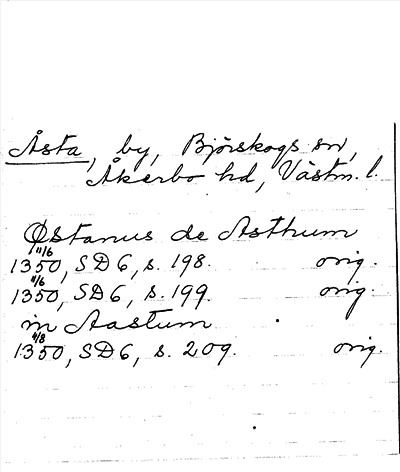 Åsta, by, Björskogs sn,
Åkerbo hd, Västm. l.
Østanus de Asthum
11/6
1350, SD 6, s. 198. orig.
11/6
1350, SD 6, s. 199. orig.
in Aastum
4/8
1350, SD 6, s. 209. orig.